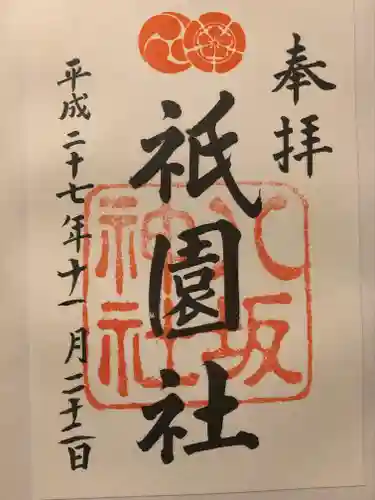 奉拝
八坂
神社
祇園社
平成二十七年十一月二十二日